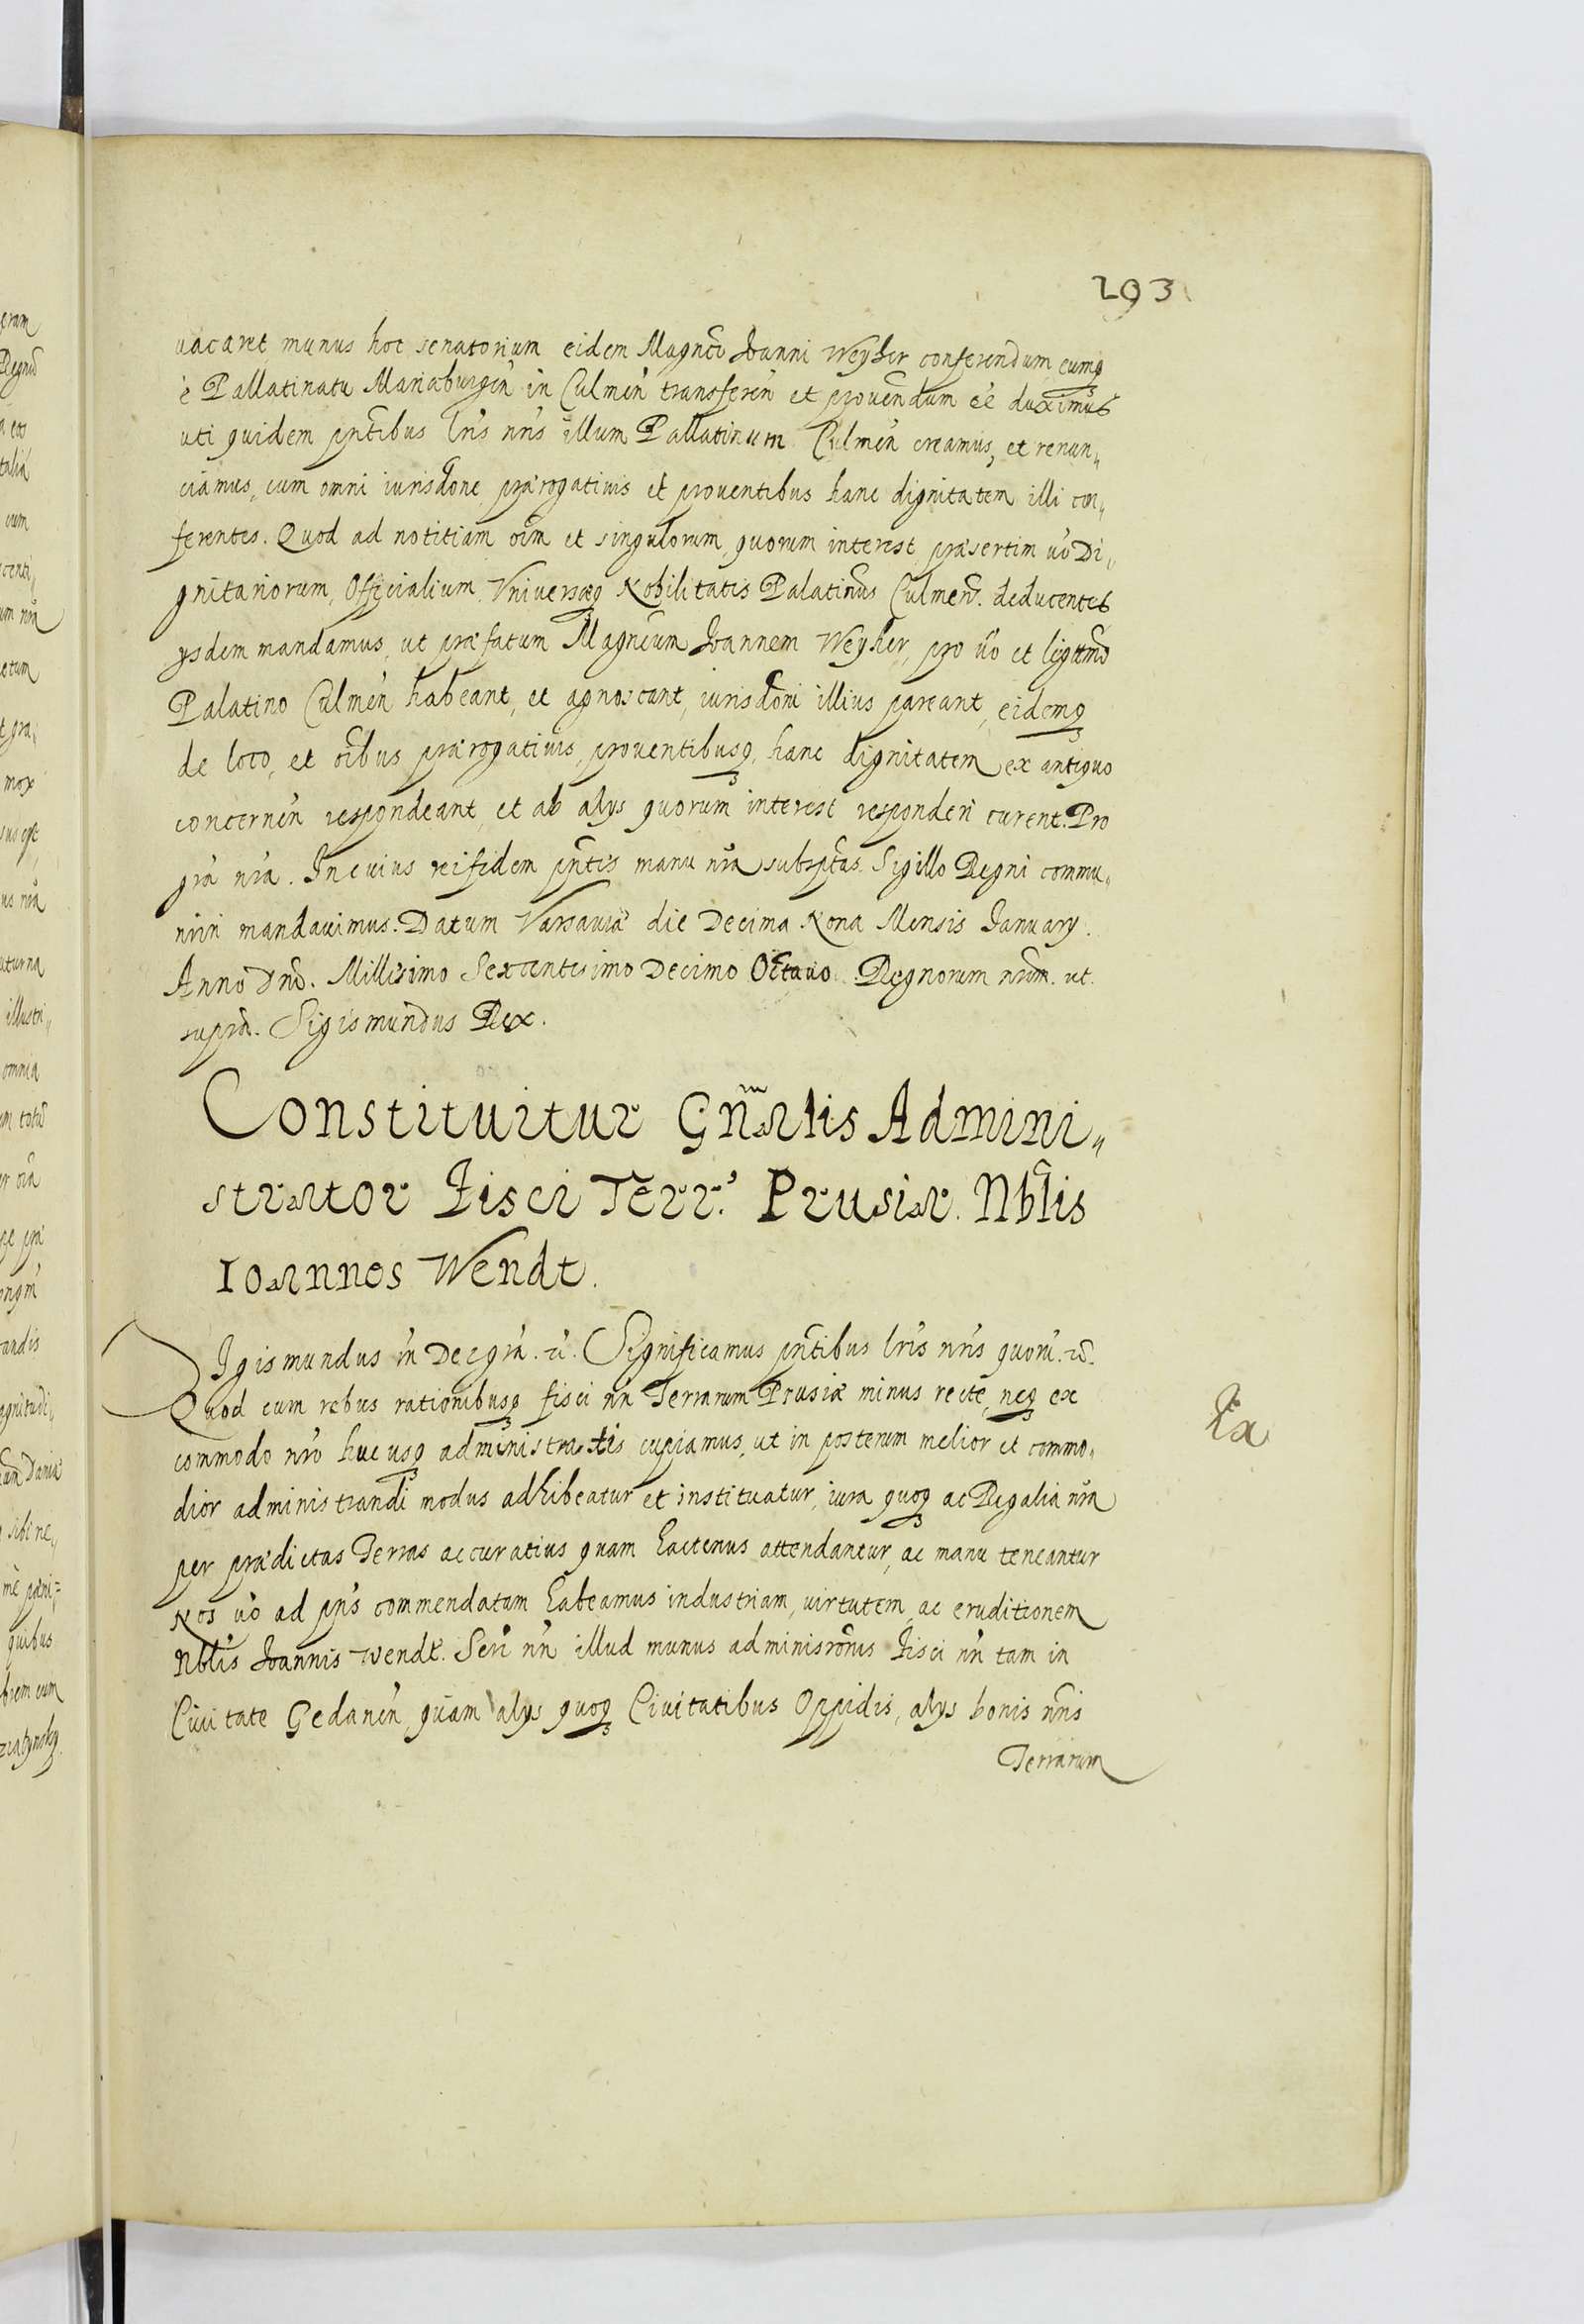 293
vacaret munus hoc senatorium eidem Magnco Joanni Weyher conferendum eumq
è Pallatinatu Mariaburgen in Culmen transferen et prouendum eẽ duximus
uti quidem pntibus lris nris illum Pallatinum Culmen creamus, et renun„
ciamus, cum omni iurisdone prærogatiuis et prouentibus hanc dignitatem illi con„
ferentes. Quod ad notitiam oim et singulorum, quorum interest præsertim uo Di„
gnitariorum, Officialium, Vniuersæq Nobilitatis Palatinus Culmen. deducentes
ysdem mandamus, ut præfatum Magncum Joannem Weyher, pro uo et legitmo
Palatino Culmen habeant, et agnoscant, iurisdoni illius pareant, eidemq
de loco, et oibus prærogatiuis, prouentibusq, hanc dignitatem ex antiquo
concernen respondeant, et ab alys quorum interest responderi curent. Pro
gra nra. In cuius rei fidem pntes manu nra subsptas. Sigillo Regni commu„
niri mandauimus. Datum Varsauiæ die Decima Nona Mensis January.
Anno Dni. Millesimo Sexcentesimo Decimo Octauo. Regnorum nrorm. ut.
supra. Sigismundus Rex.
Constituitur Gnãlis Admini„
strator Fisci Terr. Prusiæ. Nblis
Ioannes Wendt.
Sigismundus ııı Dei gra. etc. Significamus pntibus lris nris quoru. etc.
Quod cum rebus rationibusq fisci nri Terrarum Prusiæ minus recte, neq ex
commodo nro hucusq administratis cupiamus, ut in posterum melior et commo„
dior administrandi modus adhibeatur et instituatur, iura quoq ac Regalia nra
per prædictas Terras accuratius quam hactenus attendantur, ac manu teneantur
Nos uo ad pns commendatam habeamus industriam, uirtutem, ac eruditionem
Nblis Joannis Wendt. Serii nri illud munus adminisronis Fisci nri tam in
Ciuitate Gedanen quam alys quoq Ciuitatibus Oppidis, alys bonis nris
Terrarum